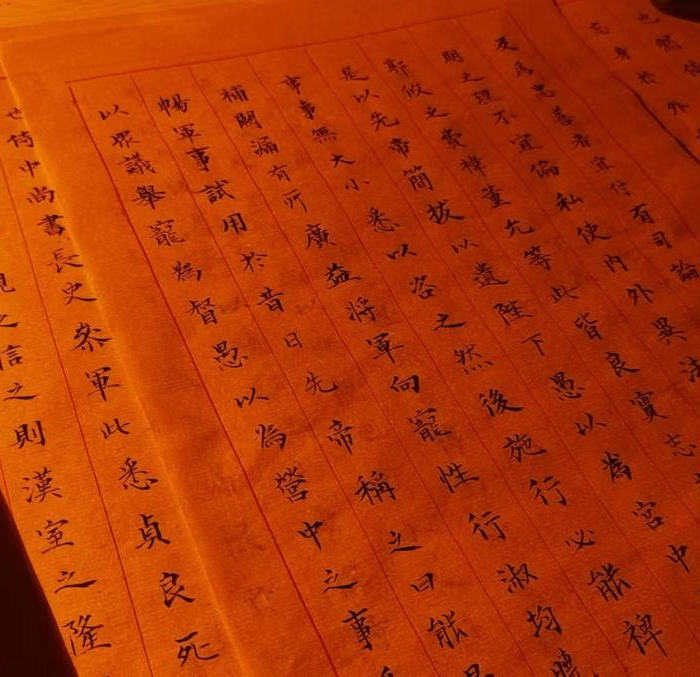 也然侍
志身於外
及為忠善者宜付有司論
明之理不宜偏私使內外異法
郭攸之費褘董允等此皆良實志
是以先帝簡拔以遺陛下愚以為宮中
事事無大小悉以咨之然後施行必能裨
補闕漏有所廣益將軍向寵性行淑均
暢軍事試用於昔日先帝稱之曰能
以眾議舉寵為督愚以為營中之事
也侍中尚書長史參軍此悉貞良死
之信之則漢室之隆